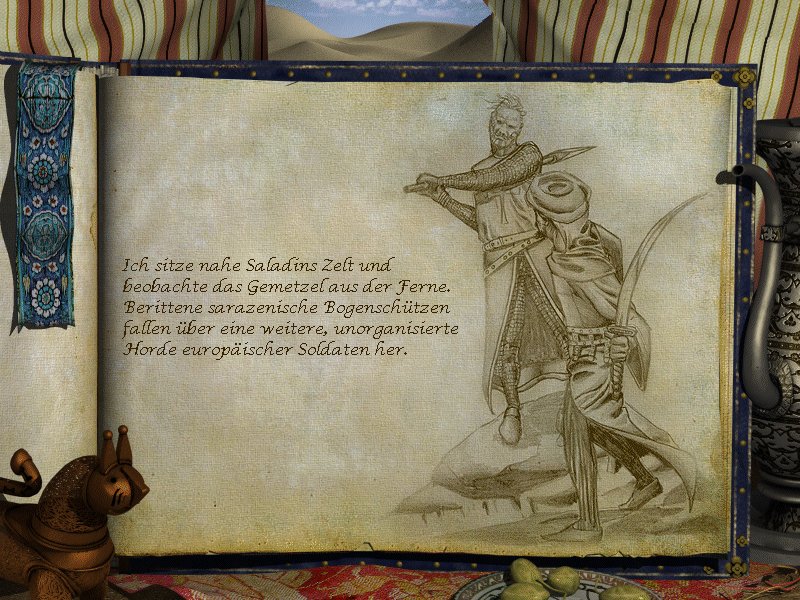 Ich sitze nahe Saladins Zelt und
beobachte das Gemetzel aus der Ferne.
Berittene sarazenische Bogenschützen
fallen über eine weitere, unorganisierte
Horde europäischer Soldaten her.